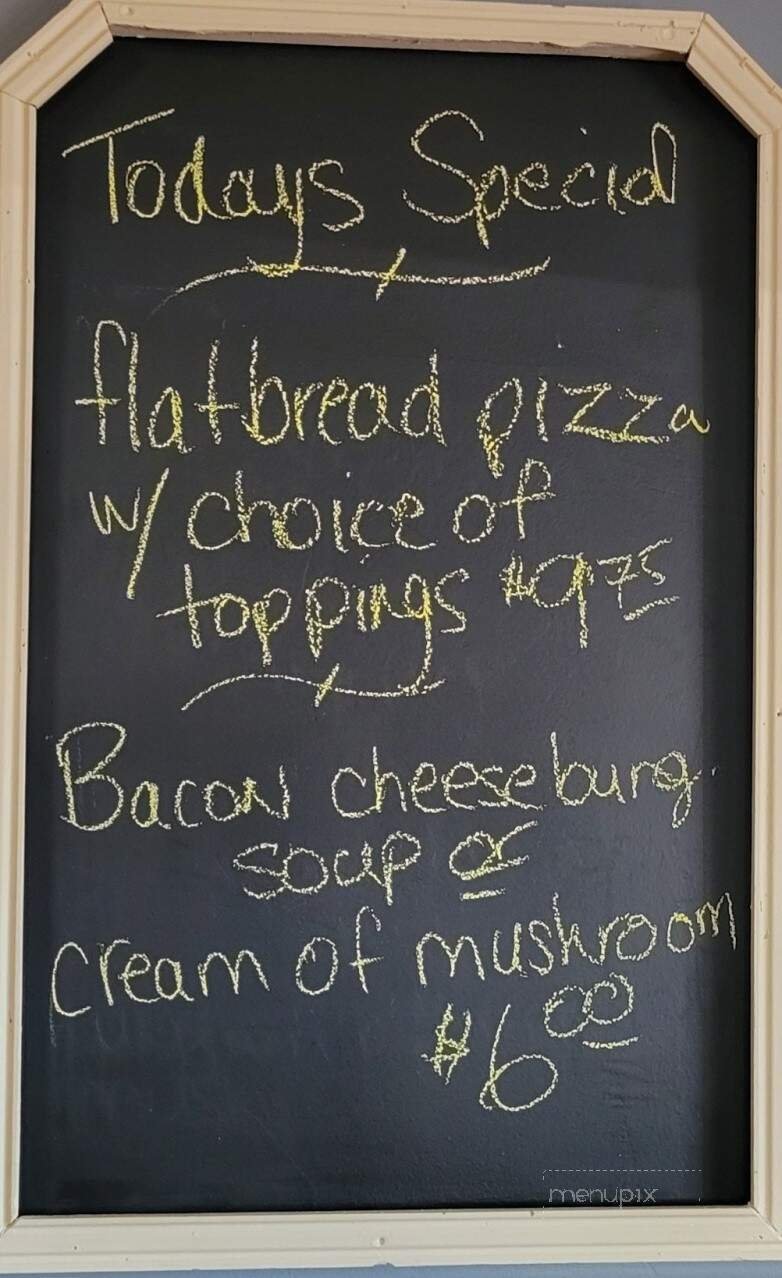 Todays Special
flatbread pizza
w/ choice of
toppings $9 75
Bacon cheeseburg.
soup or
cream of mushroom
$6 00
menupix